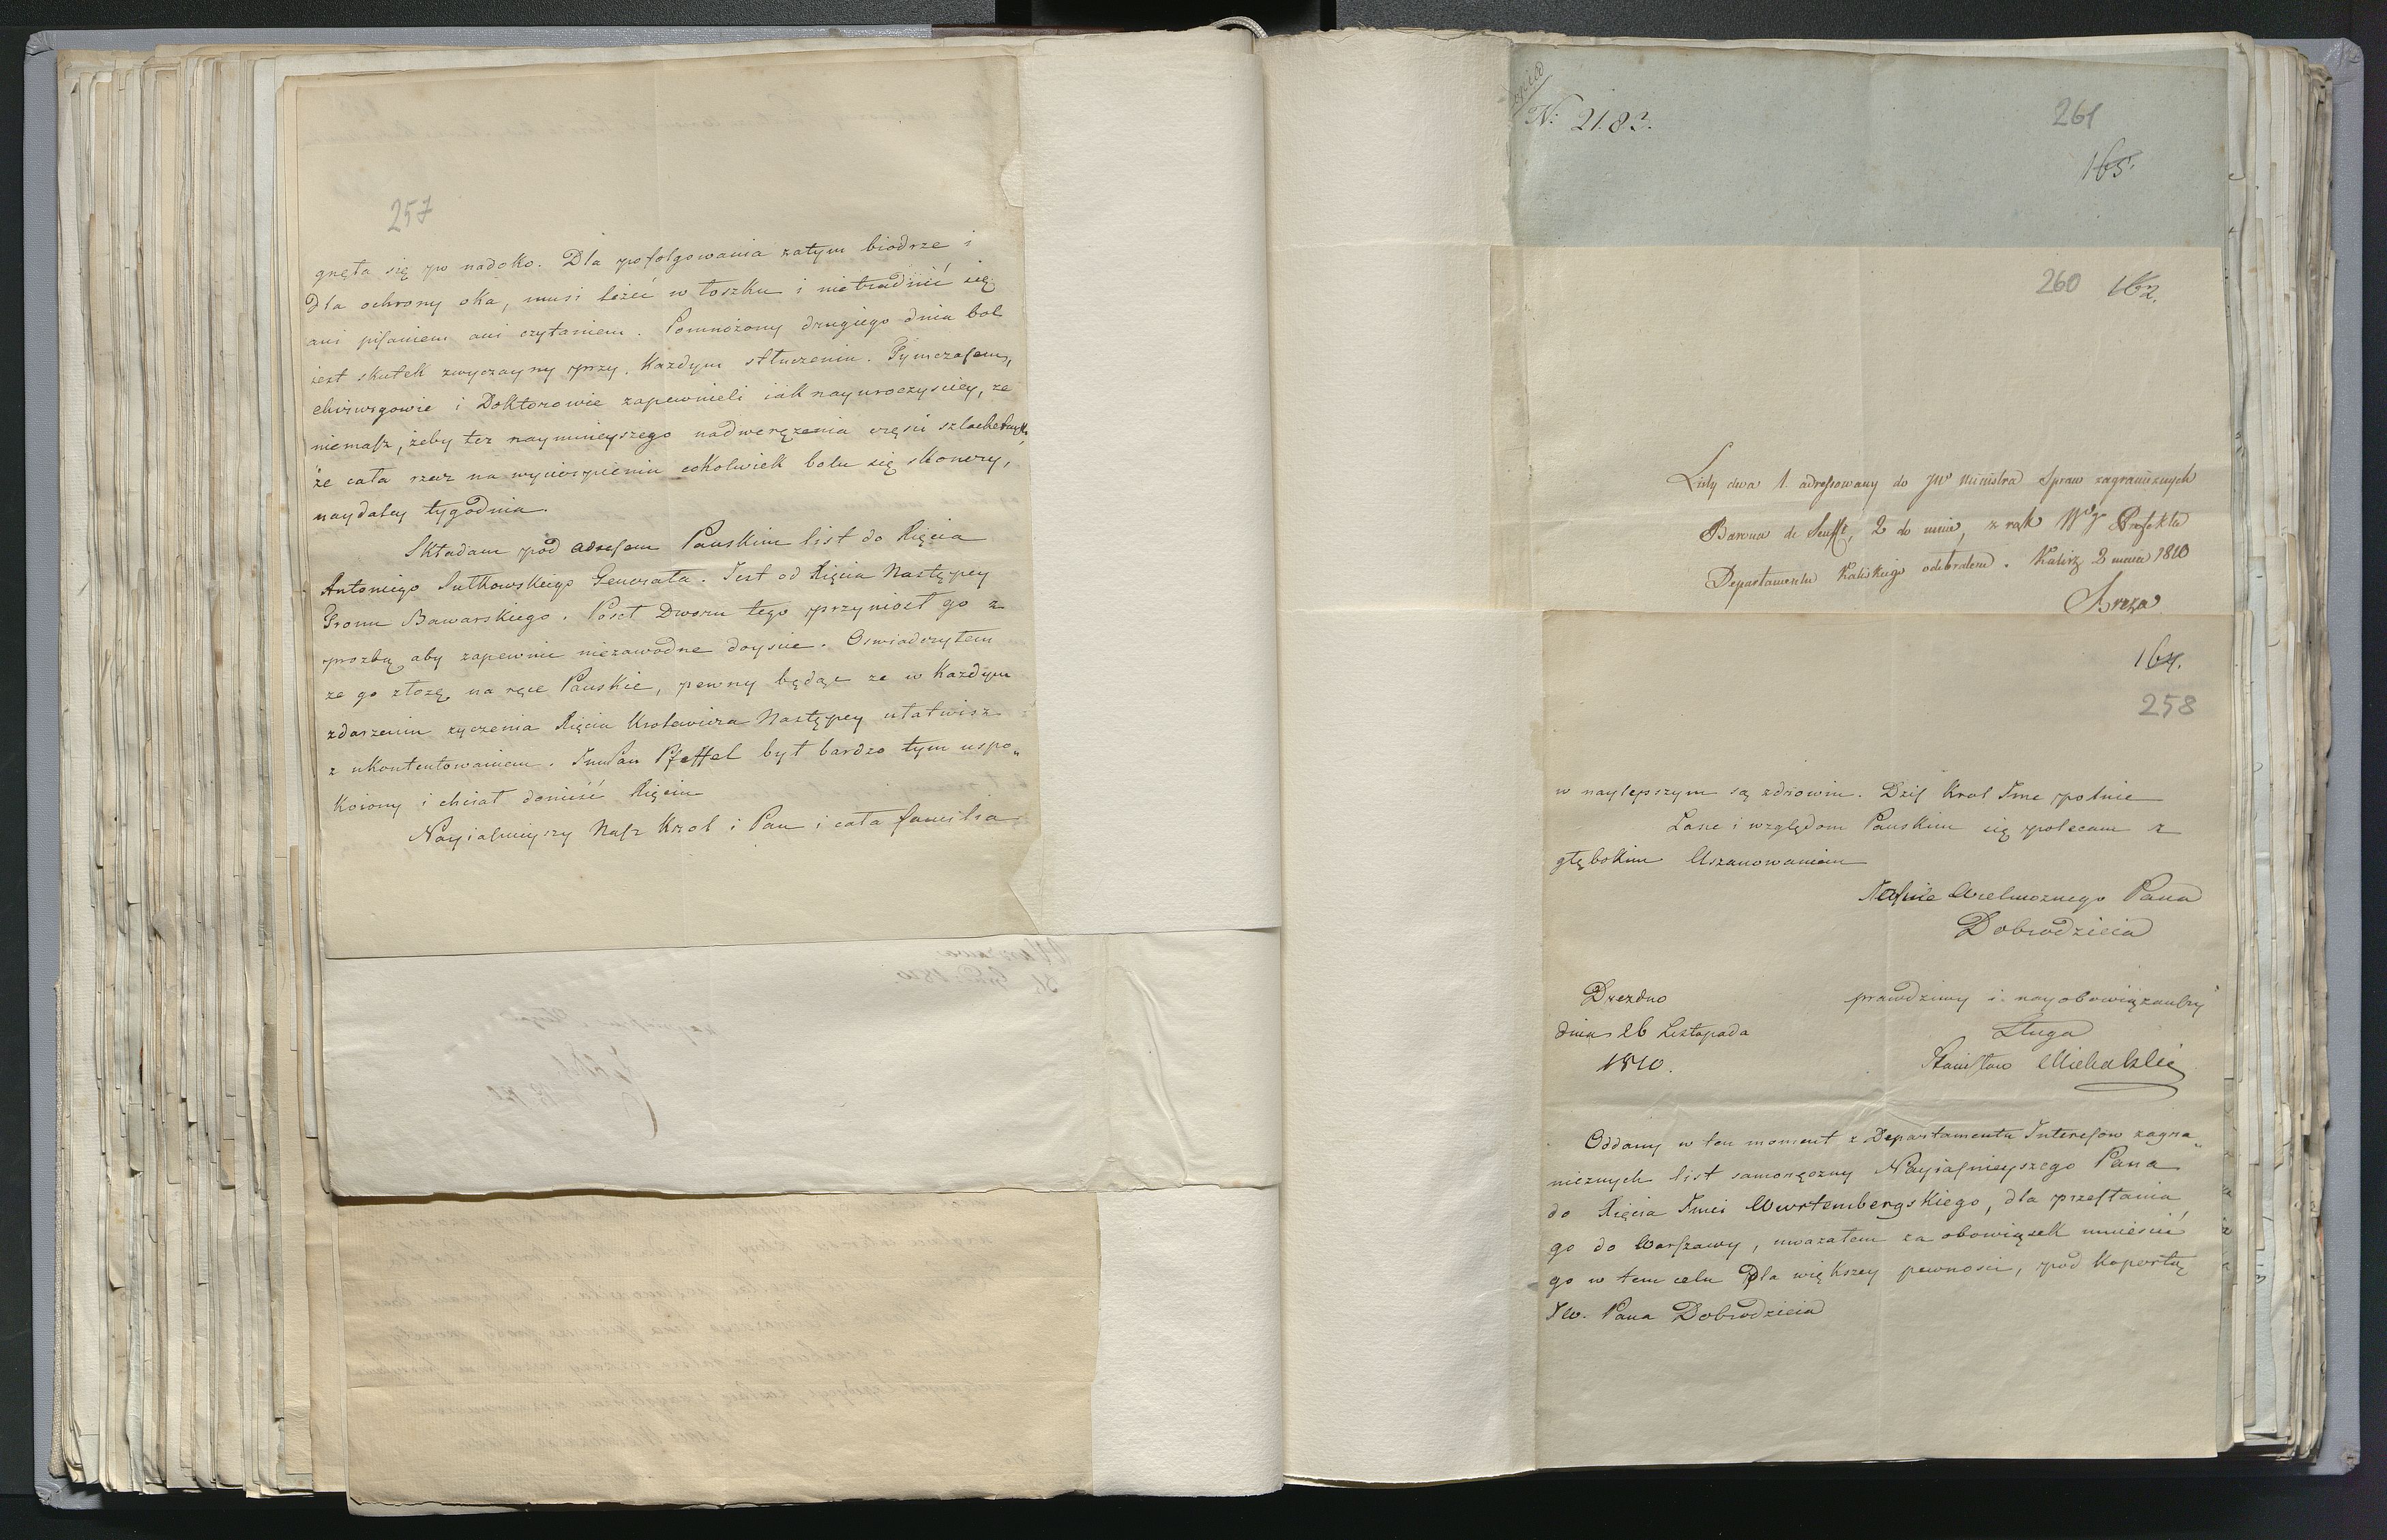 257
gnęła się po nadoko. Dla pofolgowania zatym biodrze i
Dla ochrony oka, musi leżeć w łoszku i nietrudnić się
ani pisaniem ani czytaniem. Pomnożony drugiego dnia bol
iest skutek zwyczayny przy każdym stłuczeniu. Tymczasem,
chirurgowie i Doktorowie zapewnieli iak nayuroczyściey, ze
niemasz, żeby też naymnieyszego nadwerężenia części szlachetnych
że cała rzecz na wycierpieniu cokolwiek bolu się skonczy,
naydaley tygodnia.
Składam pod adresem Panskim list do Xięcia
Antoniego Sułkowskiego Generała. Jest od Xięcia Następcy
Tronu Bawarskiego. Poseł Dworu tego przyniosł go z
prozbą aby zapewnić niezawodne doyście. Oswiadczyłem
ze go złożę na ręce Panskie, pewny będąc ze w każdym
zdarzeniu zyczenia Xięcia Krolewica Następcy ułatwisz
z ukontentowaniem. Pfeffel był bardzo tym uspo„
koiony i chciał donieść Xięciu
Nayiasnieyszy Nasz Krol i Pan i cała familia
N: 2182.
261
165.
260 162.
Listy dwa 1. adressowany do JW Ministra Spraw zagranicznych
Barona de Senfft, 2 do mnie, z rąk Prefekta
Departamentu Kaliskiego odebrałem. Kalisz 3 maia 1810
Breza
164.
258
w naylepszym są zdrowiu. Dziś Krol Jmc poluie
Łasce i względom Panskim się polecam z
głębokim Uszanowaniem
Jaśnie Wielmoznego Pana
Dobrodzieia
Drezdno
dnia 26 Listopada
1810.
prawdziwy i nayobowiązańszy
Sługa
Stanisław
Oddany w ten moment z Departamentu Interesow zagra„
nicznych list samoręczny Nayiasnieyszego Pana
do Xięcia Jmci Wurtembergskiego, dla przesłania
go do Warszawy, uważałem za obowiązek umieścić
go w tem celu Dla większey pewnosci, pod kopertą
JW. Pana Dobrodzieia